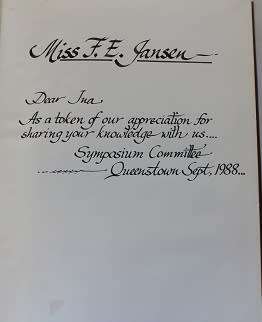 Miss F. E. Jansen
Dear Ina
As a token of our appreciation for
sharing your knowledge with us....
Symposium Committee
Queenstown Sept, 1988...